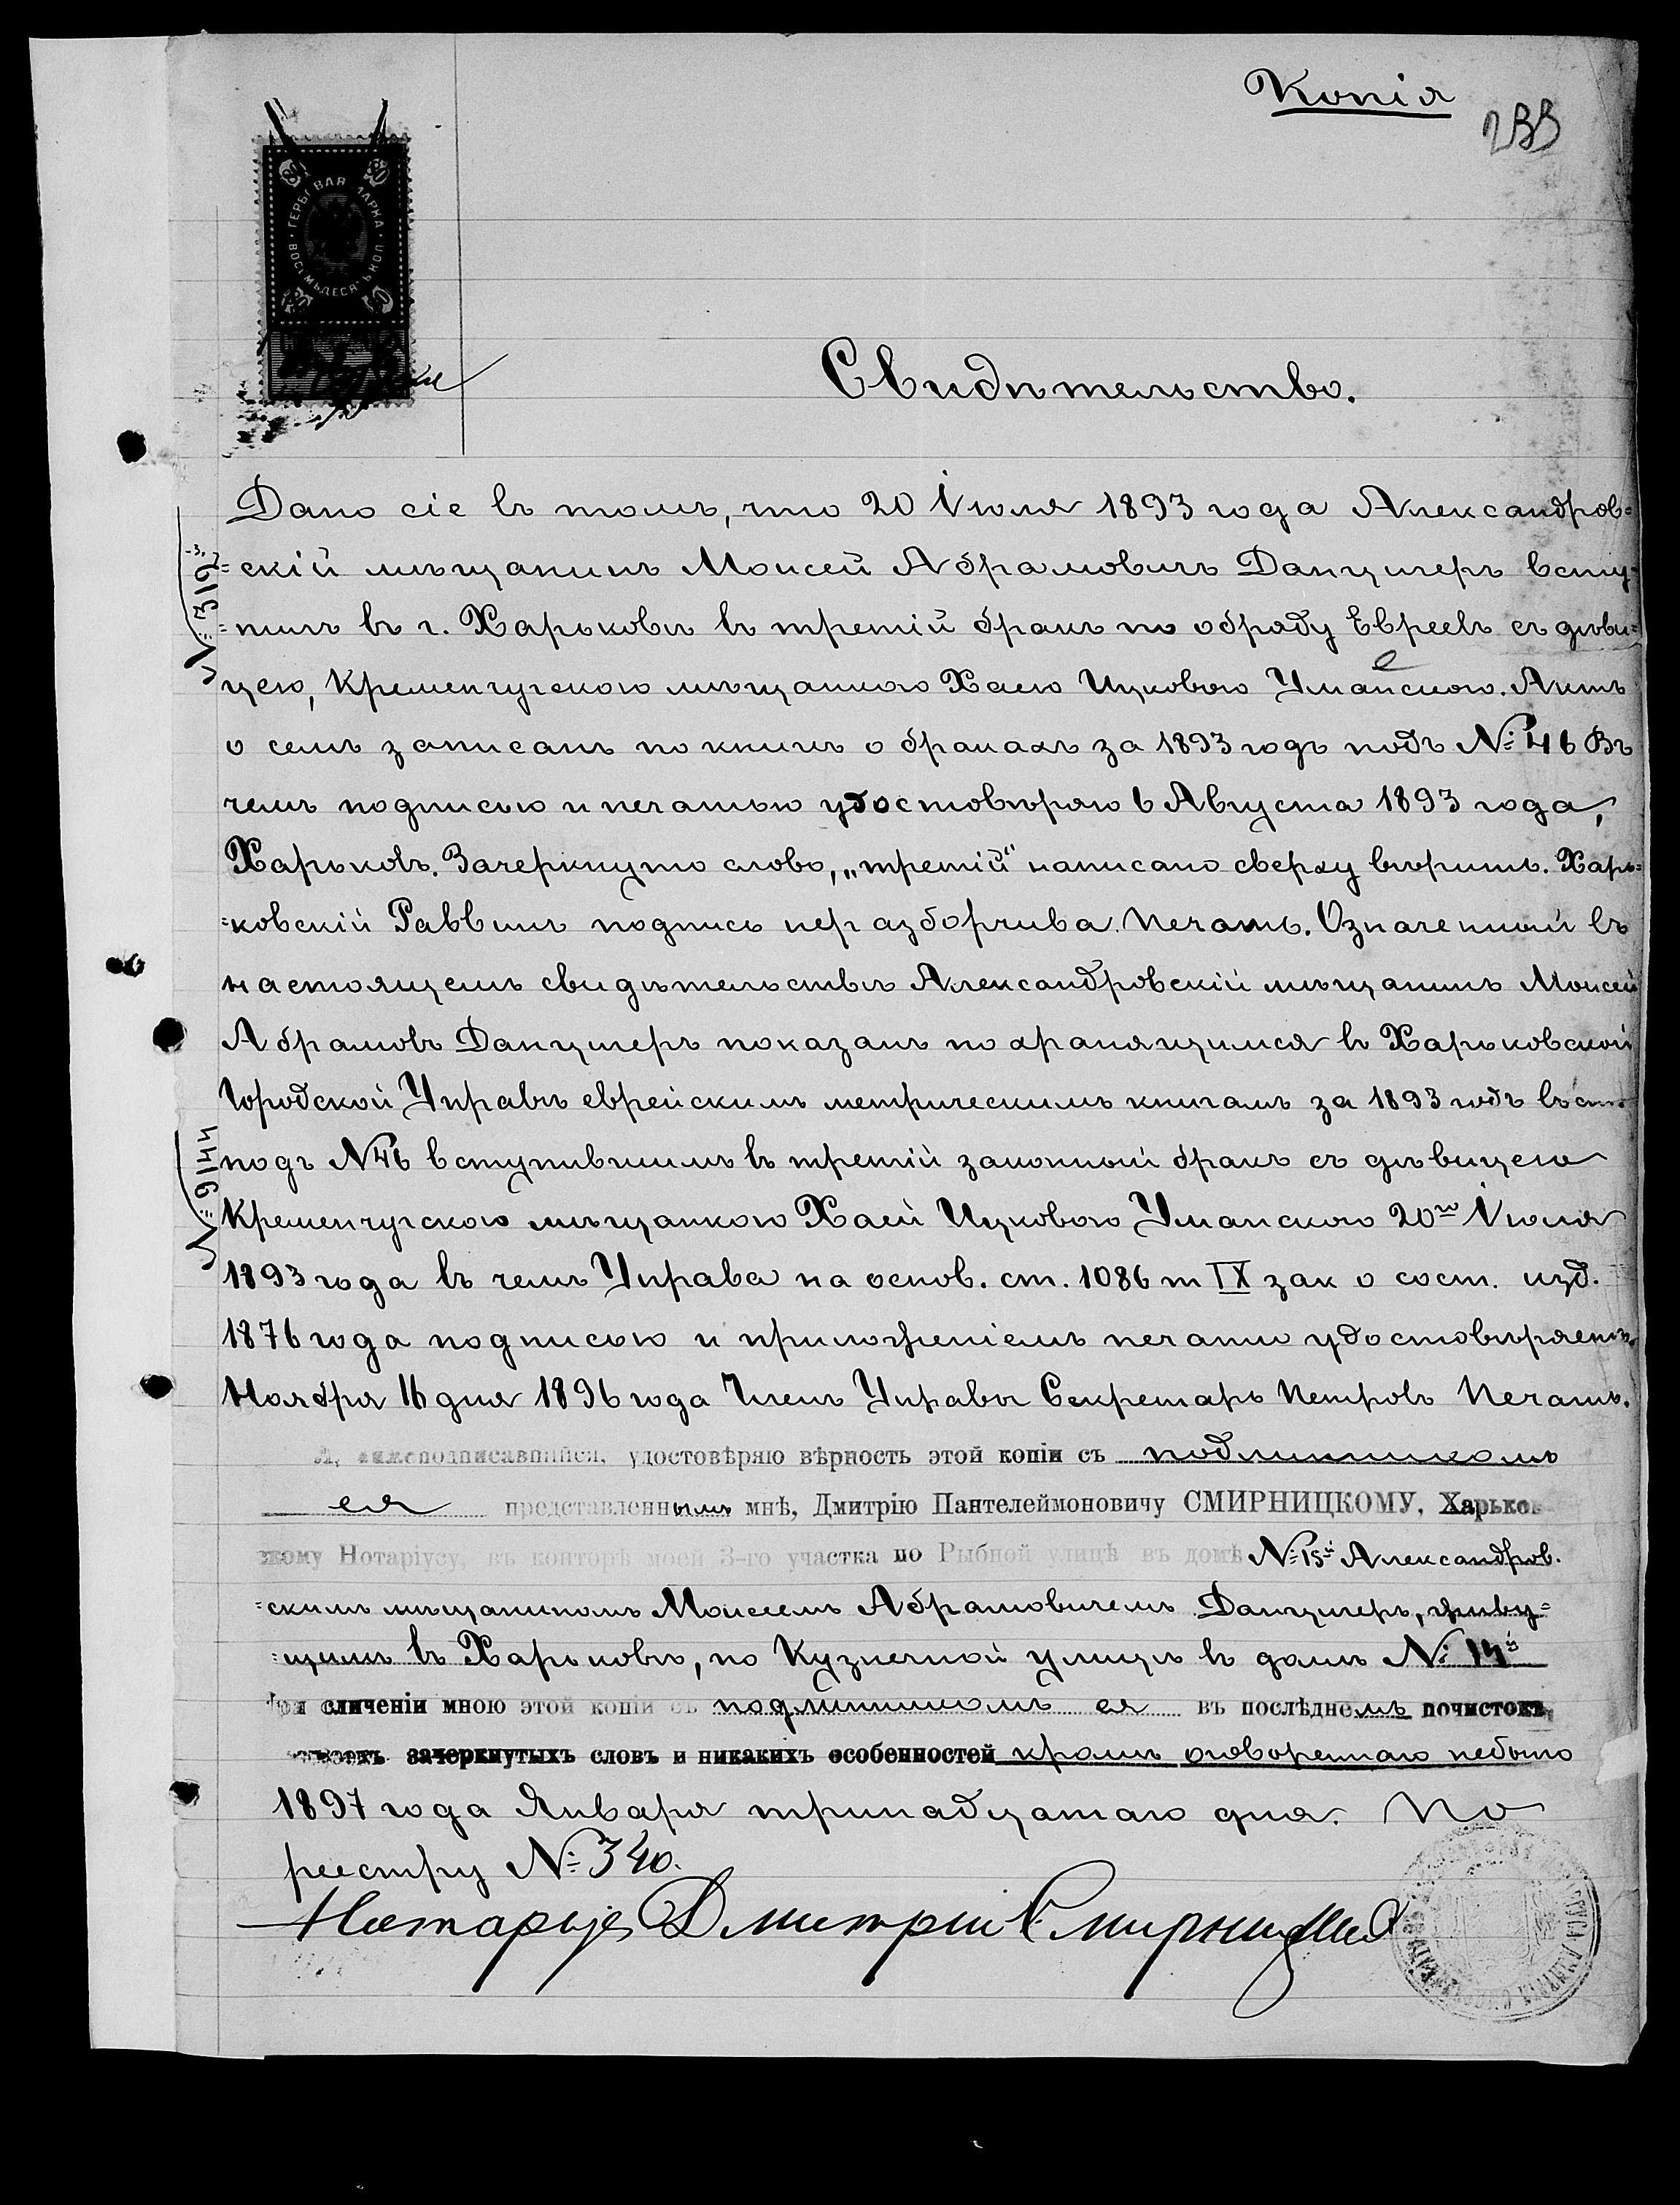 Копія
233
ГЕРБОВАЯ МАРКА
ВОСЕМЬДЕСЯТЬ КОП.
80
Свидѣтельство.
Дано сіе въ томъ, что 20 Іюля 1893 года Александров=
=скій мѣщанинъ Моисей Абрамовичъ Данцигеръ всту=
=пилъ въ г. Харьковѣ въ третій бракъ по обряду Евреевъ съ дѣви=
цею, Кременчугскою мѣщанкою Хаею Ицковою Уманскою. Актъ
о семъ записанъ по книгѣ о бракахъ за 1893 годъ подъ №46 Въ
чемъ подписью и печатью удостовѣряю 6 Августа 1893 года,
Харьковъ. Зачеркнуто слово, „третій“ написано сверху вѣрить. Харь=
=ковскій Раввинъ подпись неразборчива. Печать. Означенный въ
настоящемъ свидѣтельствѣ Александровскій мѣщанинъ Моисей
Абрамовъ Данцигеръ показанъ по хранящимся въ Харьковской
Городской Управѣ еврейскимъ метрическимъ книгамъ за 1893 годъ въ ст.
подъ №46 вступившимъ въ третій законный бракъ съ дѣвицею
Кременчугскою мѣщанкою Хаей Ицковою Уманскою 20го Іюля
1893 года въ чемъ Управа на основ. ст. 1086 т IX зак о сост. изд.
1876 года подписью и приложеніемъ печати удостовѣряетъ.
Ноября 16 дня 1896 года Членъ Управы Секретарь Петровъ Печать.
Я, нижеподписавшійся, удостовѣряю вѣрность этой копіи съ подлинникомъ
ея представленнымъ мнѣ, Дмитрію Пантелеймоновичу СМИРНИЦКОМУ, Харьков
скому Нотаріусу, въ конторѣ моей 3-го участка по Рыбной улицѣ въ домѣ №15й Александров.
=скимъ мѣщаниномъ Моисеемъ Абрамовичемъ Данцигеръ, живу=
=щимъ въ Харьковѣ, по Кузнечной улицѣ въ домѣ № 14й
При сличеніи мною этой копіи съ подлинникомъ ея въ послѣднемъ почистокъ,
зачеркнутыхъ словъ и никакихъ особенностей кромѣ оговореннаго небыло
1897 года Января тринадцатаго дня. По
реестру №340.
Нотаріусъ Дмитрій Смирницкій
№ 9144